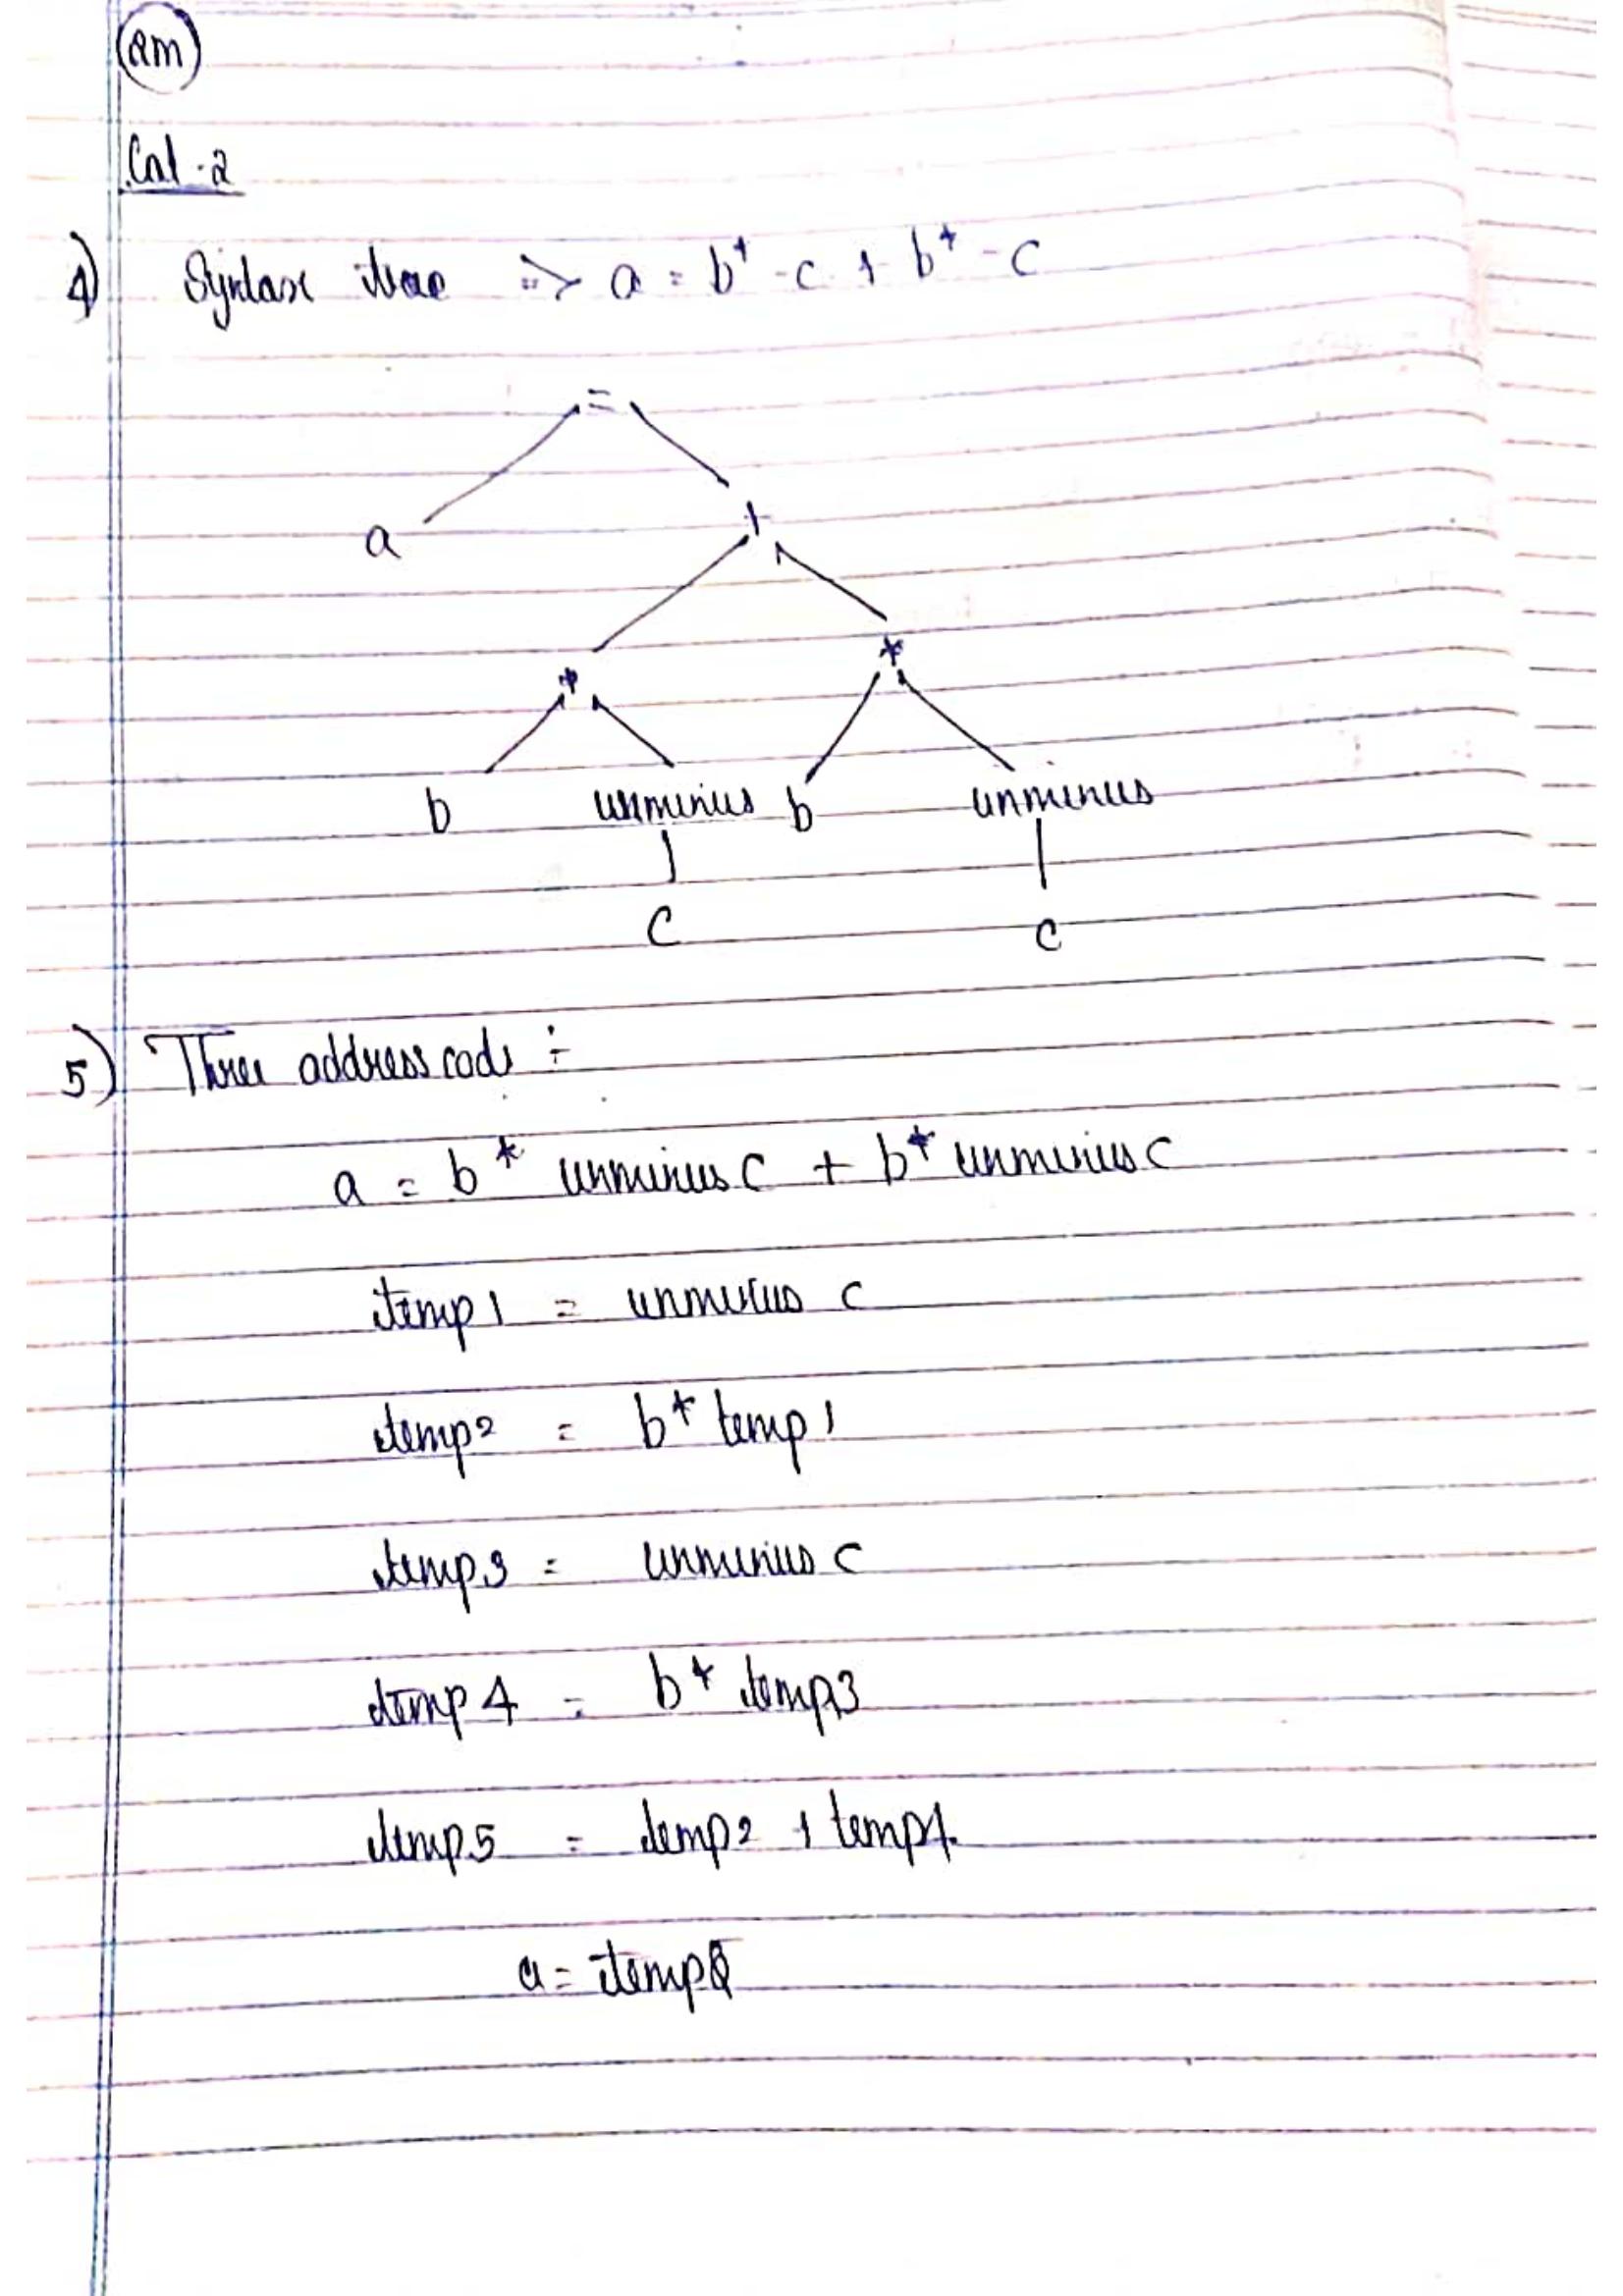 2m
Cal-2
4) Syntax tree => a = b* -c + b* -c
=
a +
* *
b unminus b unminus
c c
5) Three address code :-
a = b* unminus c + b* unminus c
temp1 = unminus c
temp2 = b* temp1
temp3 = unminus c
temp4 = b* temp3
temp5 = temp2 + temp4.
a = temp